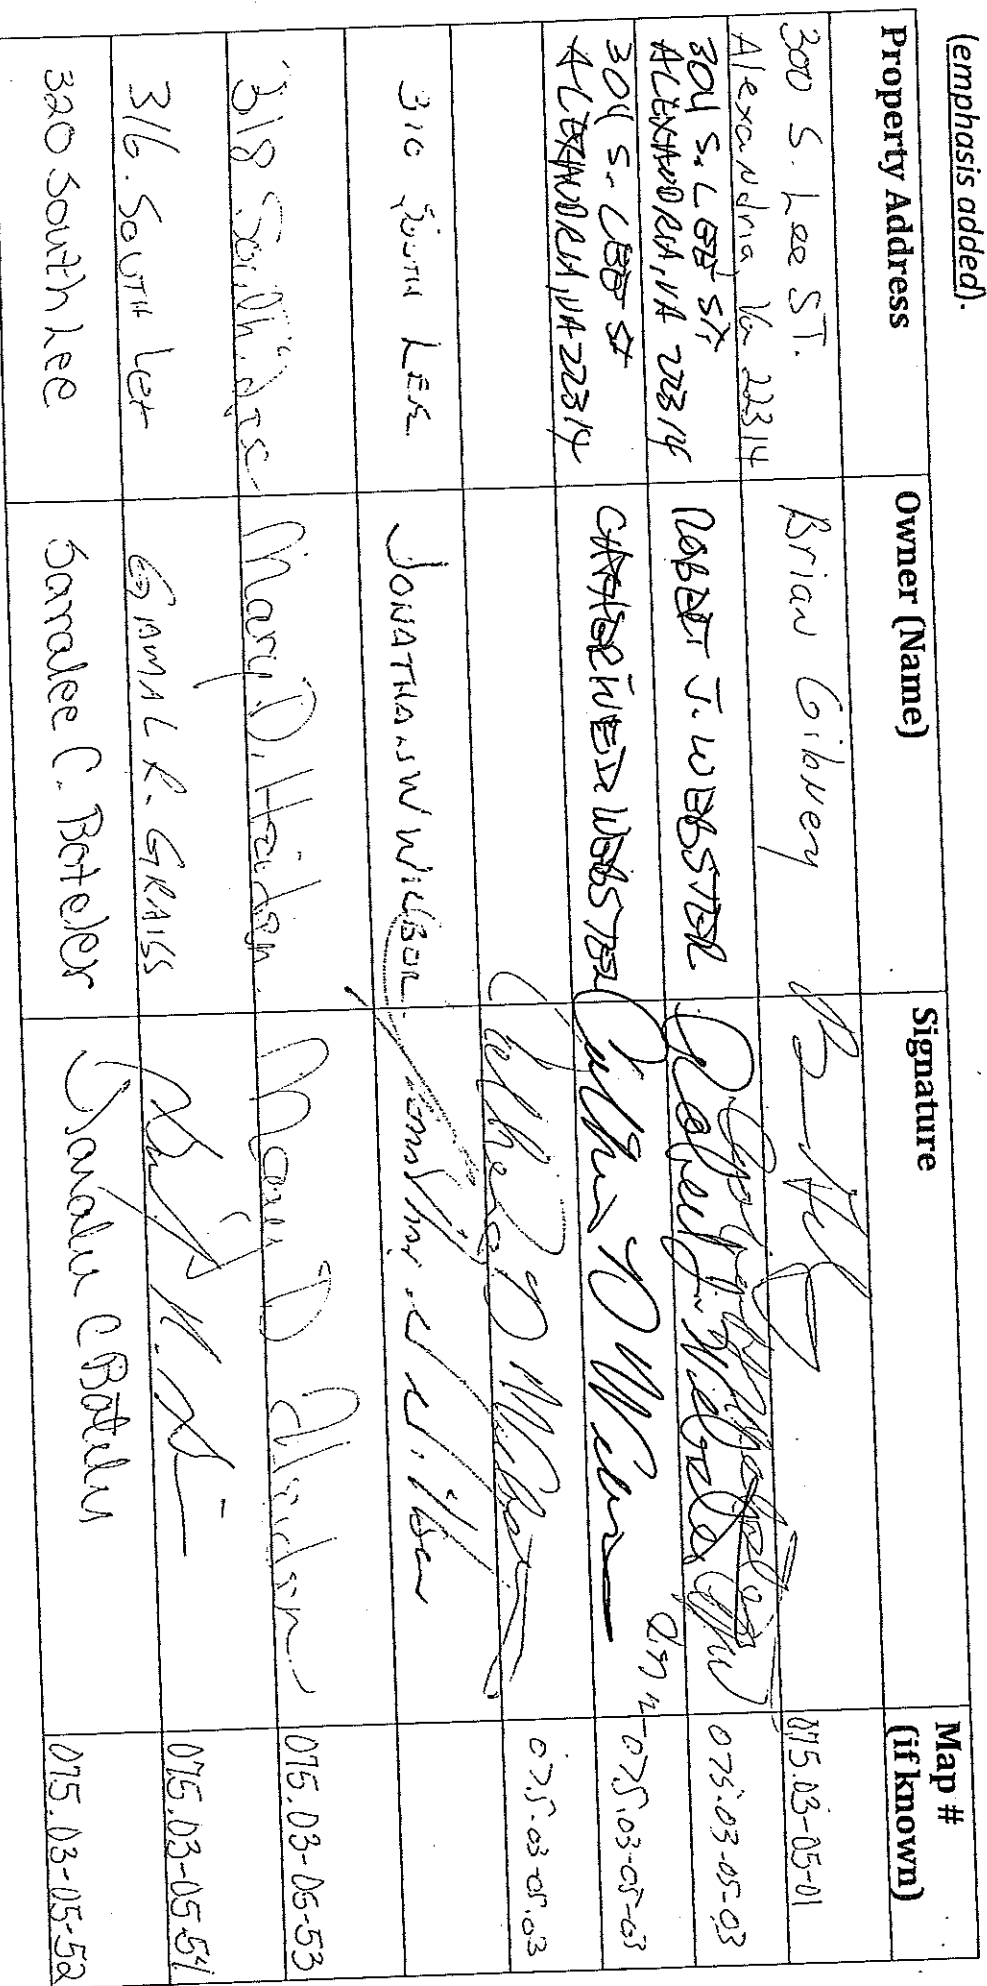 (emphasis added).
Property Address
Owner (Name)
Signature
Map #
(if known)
300 S. Lee ST.
Alexandria, Va 22314
Brian Gibney
075.03-05-01
304 S. LEE ST.
ALEXANDRIA, VA 22314
ROBERT J. WEBSTER
Robert J. Webster
075.03-05-03
304 S. LEE ST
ALEXANDRIA, VA 22314
CATHERINE D WEBSTER
075.03-05-03
075.03-05.03
310 SOUTH LEE
JONATHAN W WILBOR
318 South Lee
Mary D. Haidon
Mary D
075.03-05-53
316. SOUTH Lee
GAMAL R. GRAISS
075.03-05-54
320 South Lee
Sarralee C. Boteler
Sarralee C Boteler
075.03-05-52